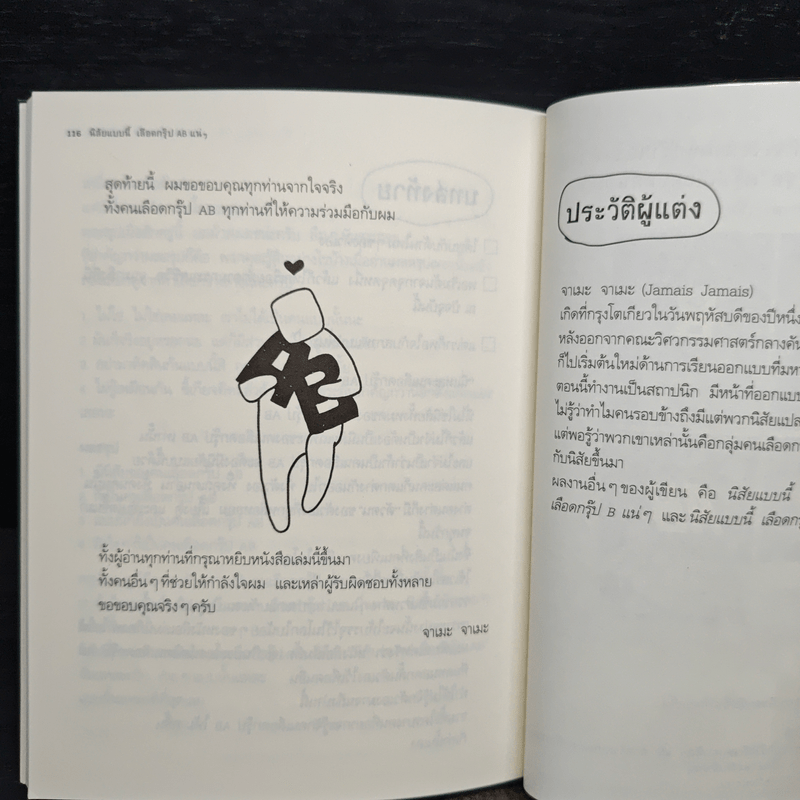 116 นิสัยแบบนี้ เลือดกรุ๊ป AB แน่ๆ
สุดท้ายนี้ ผมขอขอบคุณทุกท่านจากใจจริง
ทั้งคนเลือดกรุ๊ป AB ทุกท่านที่ให้ความร่วมมือกับผม
AB
ทั้งผู้อ่านทุกท่านที่กรุณาหยิบหนังสือเล่มนี้ขึ้นมา
ทั้งคนอื่นๆ ที่ช่วยให้กำลังใจผม และเหล่าผู้รับผิดชอบทั้งหลาย
ขอขอบคุณจริงๆ ครับ
จาเมะ จาเมะ
ประวัติผู้แต่ง
จาเมะ จาเมะ (Jamais Jamais)
เกิดที่กรุงโตเกียวในวันพฤหัสบดีของปีหนึ่ง
หลังออกจากคณะวิศวกรรมศาสตร์กลางคัน
ก็ไปเริ่มต้นใหม่ด้านการเรียนออกแบบที่มหา
ตอนนี้ทำงานเป็นสถาปนิก มีหน้าที่ออกแบบ
ไม่รู้ว่าทำไมคนรอบข้างถึงมีแต่พวกนิสัยแปล
แต่พอรู้ว่าพวกเขาเหล่านั้นคือกลุ่มคนเลือดก
กับนิสัยขึ้นมา
ผลงานอื่นๆ ของผู้เขียน คือ นิสัยแบบนี้
เลือดกรุ๊ป B แน่ๆ และ นิสัยแบบนี้ เลือดกรุ